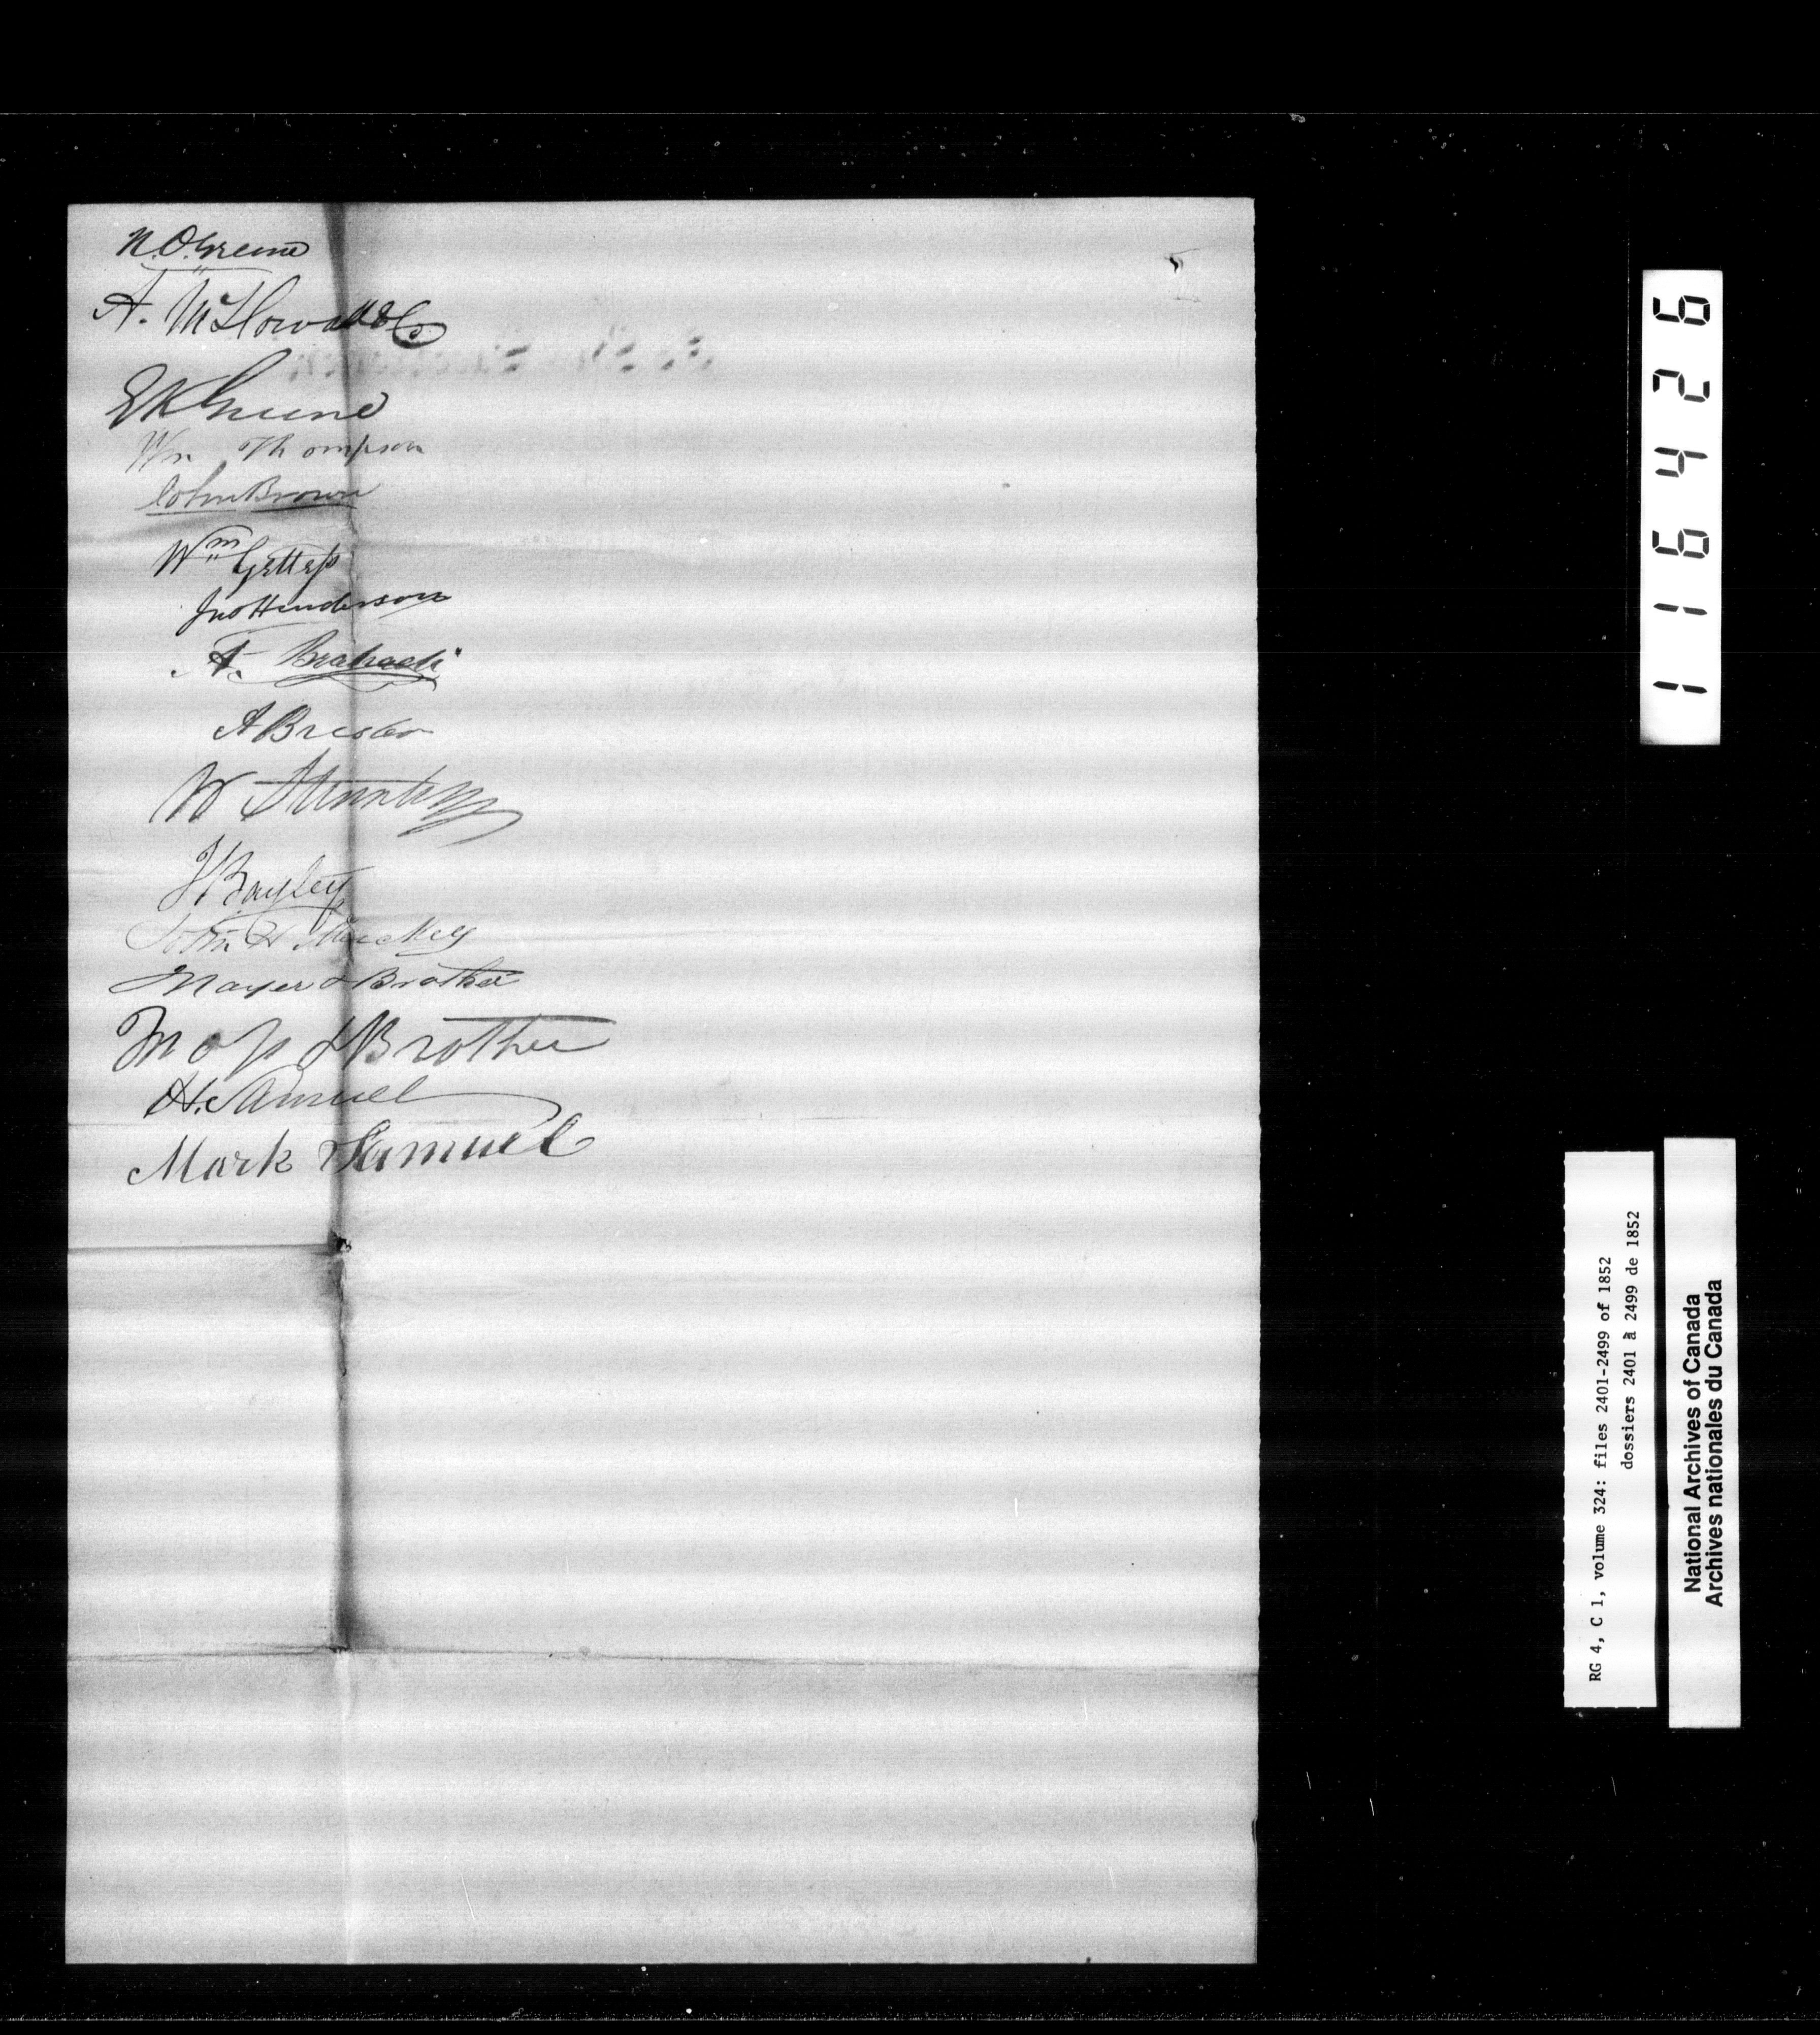 N. O. Greene
A. McL Howard & Co
E K Greene
Wm Thompson
John Brown
Wm Gettess
Jno Henderson
A.
A Brisbo
W
J Bayley
John H
Mayer & Brother
Moss & Brother
H. Samuel
Mark Samuel
116426
RG 4, C 1, volume 324: files 2401-2499 of 1852
dossiers 2401 à 2499 de 1852
National Archives of Canada
Archives nationales du Canada